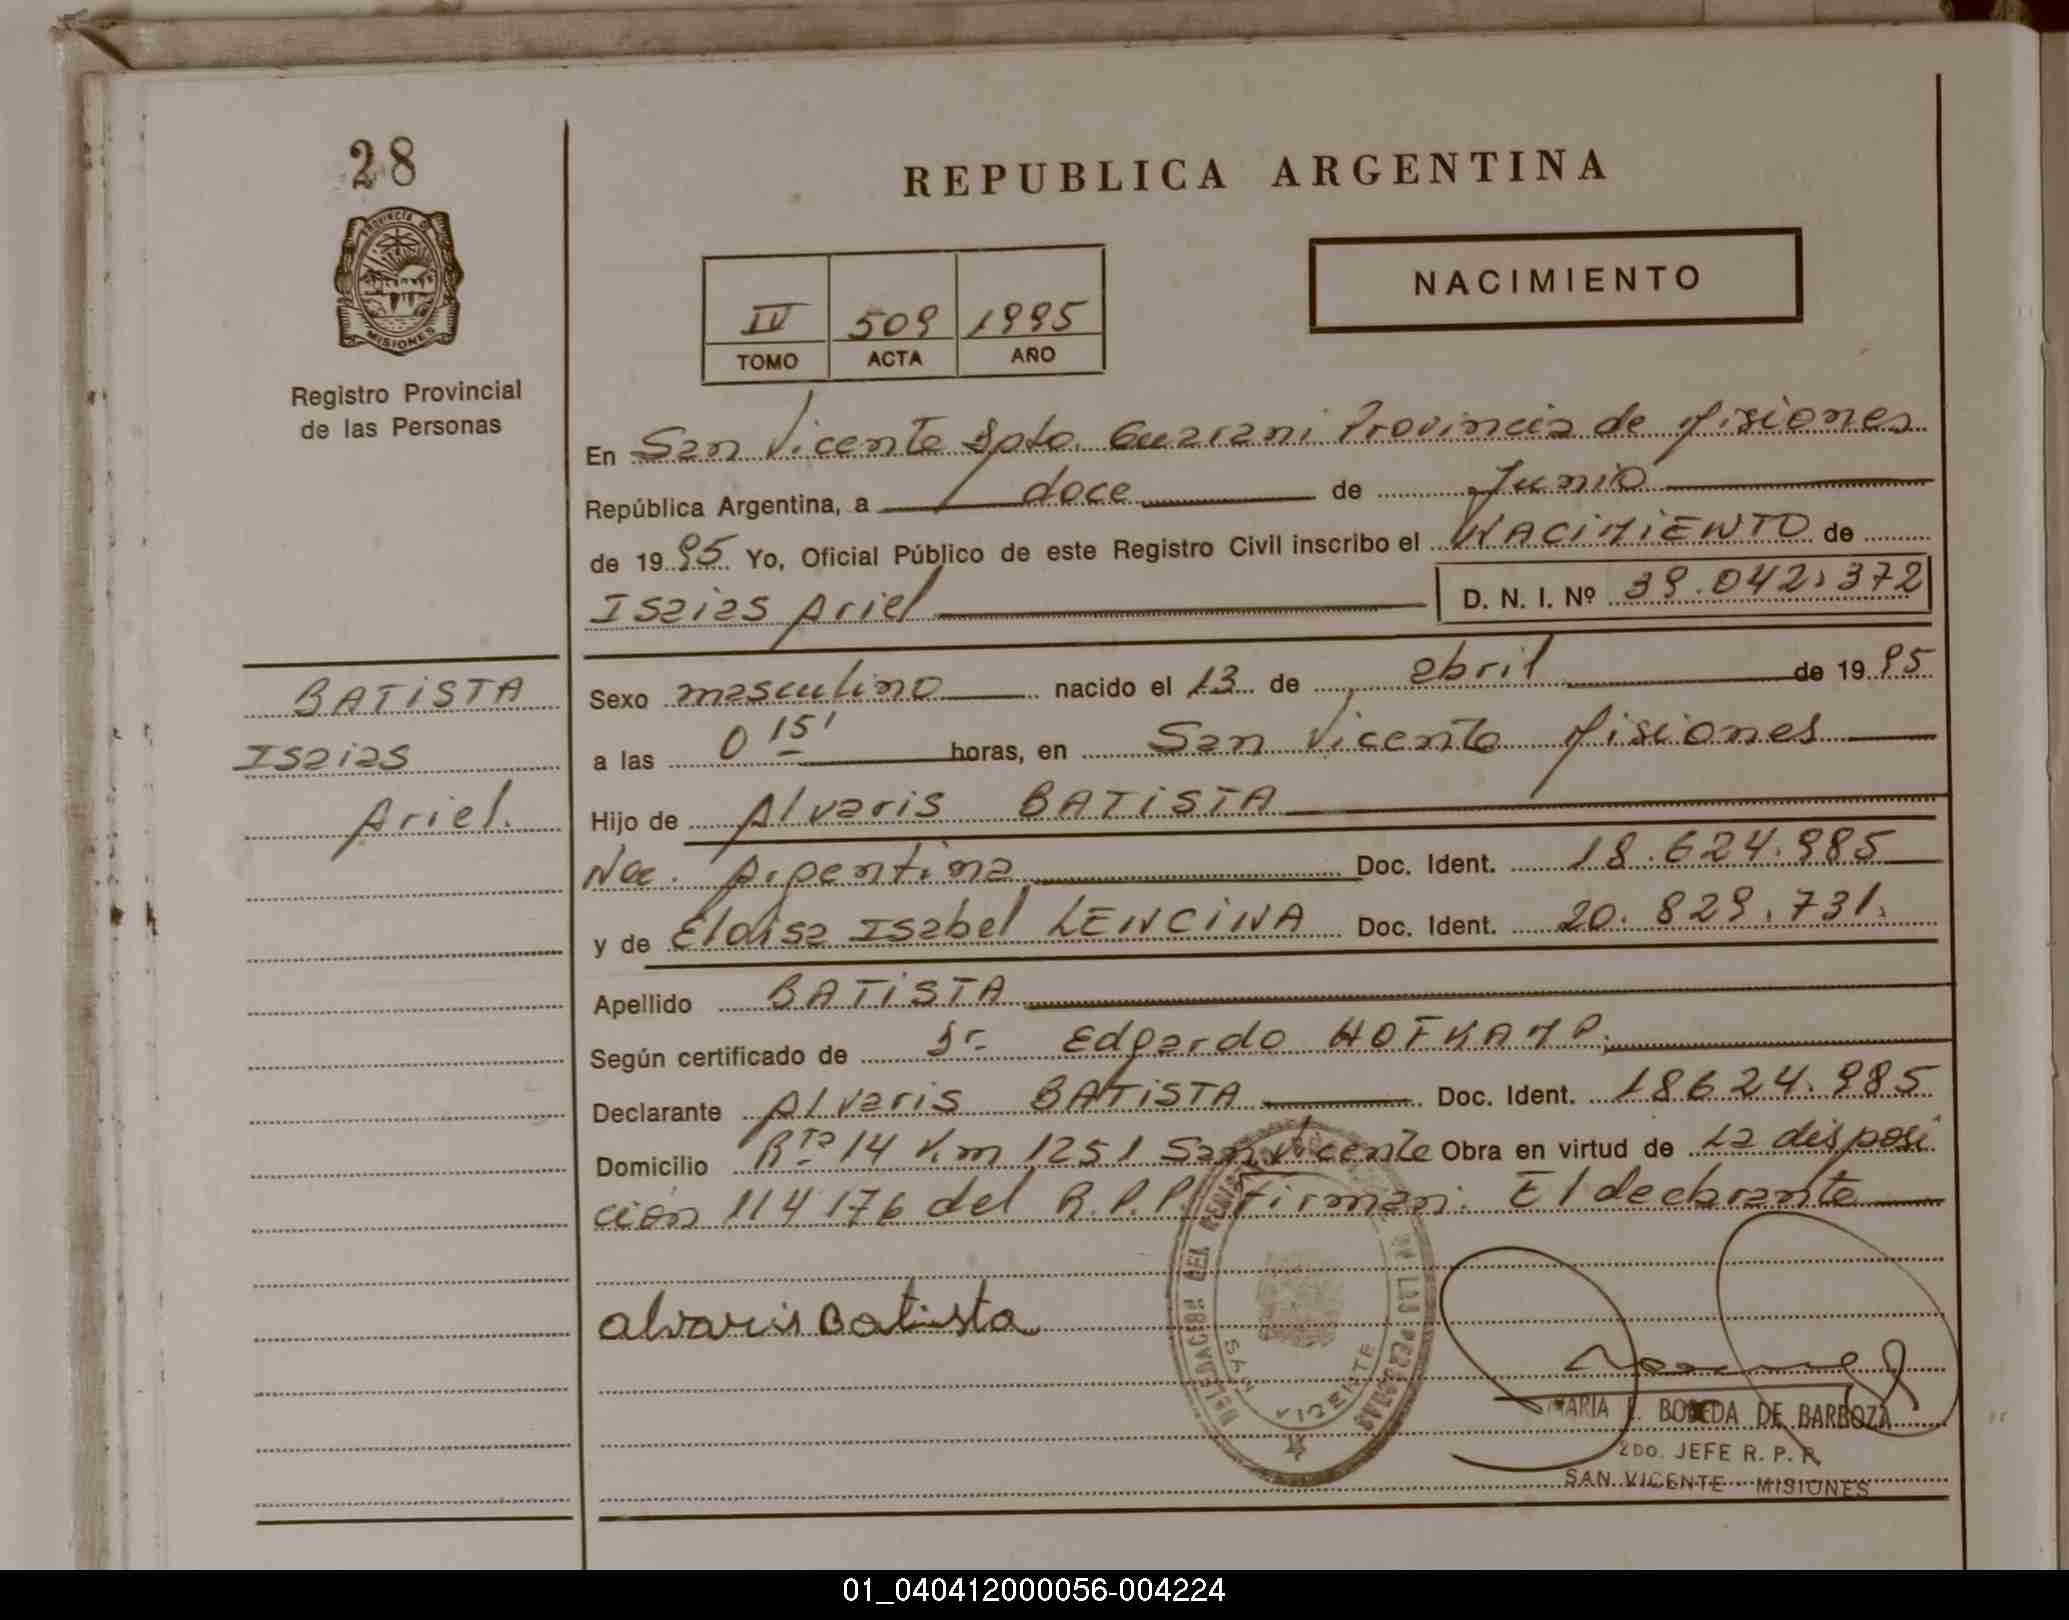 28
PROVINCIA DE
MISIONES
Registro Provincial
de las Personas
REPUBLICA ARGENTINA
NACIMIENTO
IV 509 1995
TOMO ACTA AÑO
En San Vicente Dpto. Guarani Provincia de Misiones
República Argentina, a doce de Junio
de 1995 Yo, Oficial Público de este Registro Civil inscribo el NACIMIENTO de
Isaias Ariel D. N. I. Nº 39.042.372
BATISTA
Isaias
Ariel.
Sexo masculino nacido el 13 de abril de 1995
a las 0 15' horas, en San Vicente Misiones
Hijo de Alvaris BATISTA
Nac. Argentina Doc. Ident. 18.624.985
y de Eloisa Isabel LENCINA Doc. Ident. 20.829.731.
Apellido BATISTA
Según certificado de Dr Edgardo HOFKAMP.
Declarante Alvaris BATISTA Doc. Ident. 18624.985
Domicilio Rta 14 Km 1251 San Vicente Obra en virtud de La disposi
ción 114176 del R.P.P. Firman: El declarante
alvaris Batista
DELEGACION DEL REGISTRO DE LAS PERSONAS
SAN VICENTE
MARIA BOBEDA DE BARBOZA
2DO. JEFE R. P. P.
SAN VICENTE - MISIONES
01_040412000056-004224